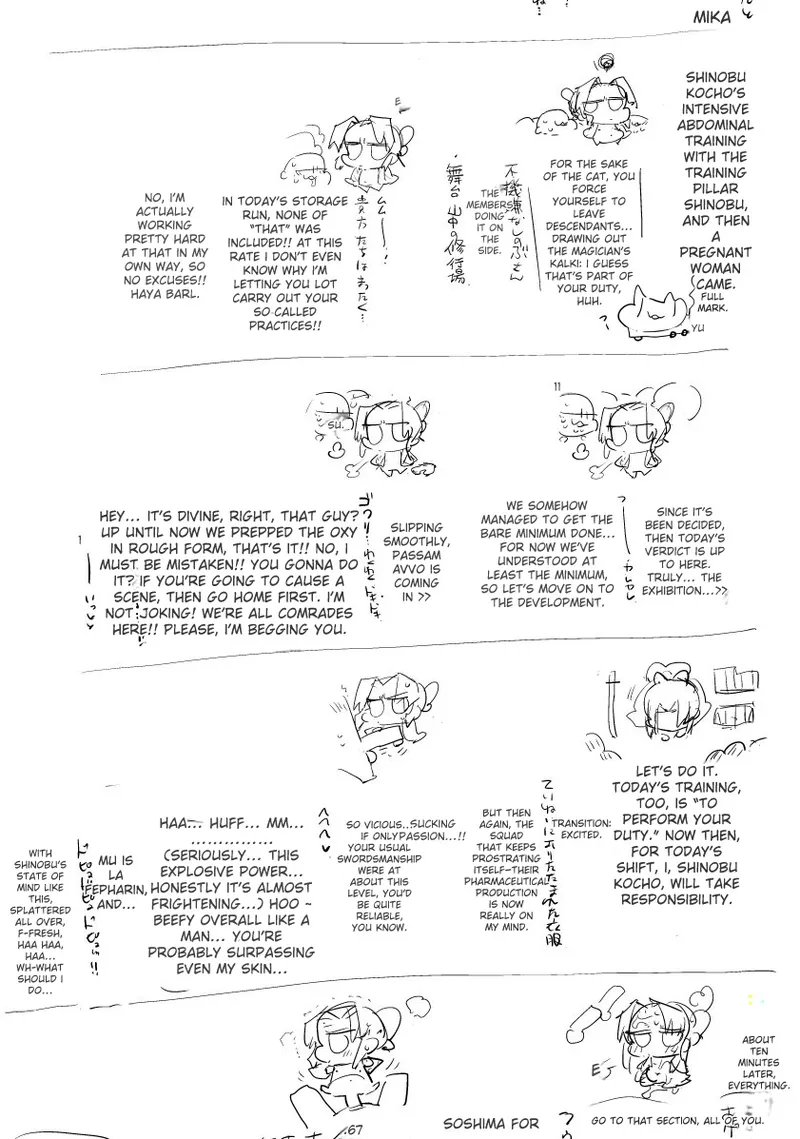 MIKA
SHINOBU
KOCHO'S
INTENSIVE
ABDOMINAL
TRAINING
WITH THE
TRAINING
PILLAR
SHINOBU,
AND THEN
A
PREGNANT
WOMAN
CAME.
FULL
MARK.
YU
FOR THE SAKE
OF THE CAT, YOU
FORCE
YOURSELF TO
LEAVE
DESCENDANTS...
DRAWING OUT
THE MAGICIAN'S
KALKI: I GUESS
THAT'S PART OF
YOUR DUTY,
HUH.
不機嫌なしのぶさん
THE
MEMBERS
DOING
IT ON
THE
SIDE.
・舞台 山中の修行場
E
ムム――!
貴方たちはまったく…
IN TODAY'S STORAGE
RUN, NONE OF
"THAT" WAS
INCLUDED!! AT THIS
RATE I DON'T EVEN
KNOW WHY I'M
LETTING YOU LOT
CARRY OUT YOUR
SO-CALLED
PRACTICES!!
NO, I'M
ACTUALLY
WORKING
PRETTY HARD
AT THAT IN MY
OWN WAY, SO
NO EXCUSES!!
HAYA BARL.
11
SINCE IT'S
BEEN DECIDED,
THEN TODAY'S
VERDICT IS UP
TO HERE.
TRULY... THE
EXHIBITION...>>
WE SOMEHOW
MANAGED TO GET THE
BARE MINIMUM DONE...
FOR NOW WE'VE
UNDERSTOOD AT
LEAST THE MINIMUM,
SO LET'S MOVE ON TO
THE DEVELOPMENT.
SU.
SLIPPING
SMOOTHLY,
PASSAM
AVVO IS
COMING
IN >>
HEY... IT'S DIVINE, RIGHT, THAT GUY?
UP UNTIL NOW WE PREPPED THE OXY
IN ROUGH FORM, THAT'S IT!! NO, I
MUST BE MISTAKEN!! YOU GONNA DO
IT? IF YOU'RE GOING TO CAUSE A
SCENE, THEN GO HOME FIRST. I'M
NOT JOKING! WE'RE ALL COMRADES
HERE!! PLEASE, I'M BEGGING YOU.
LET'S DO IT.
TODAY'S TRAINING,
TOO, IS "TO
PERFORM YOUR
DUTY." NOW THEN,
FOR TODAY'S
SHIFT, I, SHINOBU
KOCHO, WILL TAKE
RESPONSIBILITY.
TRANSITION:
EXCITED.
ていねいにおりたたまれた衣服
BUT THEN
AGAIN, THE
SQUAD
THAT KEEPS
PROSTRATING
ITSELF-THEIR
PHARMACEUTICAL
PRODUCTION
IS NOW
REALLY ON
MY MIND.
SO VICIOUS..SUCKING
IF ONLYPASSION...!!
YOUR USUAL
SWORDSMANSHIP
WERE AT
ABOUT THIS
LEVEL, YOU'D
BE QUITE
RELIABLE,
YOU KNOW.
HAA... HUFF... MM...
................
(SERIOUSLY... THIS
EXPLOSIVE POWER...
HONESTLY IT'S ALMOST
FRIGHTENING...) HOO ~
BEEFY OVERALL LIKE A
MAN... YOU'RE
PROBABLY SURPASSING
EVEN MY SKIN...
MU IS
LA
FEPHARIN,
AND...
WITH
SHINOBU'S
STATE OF
MIND LIKE
THIS,
SPLATTERED
ALL OVER,
F-FRESH,
HAA HAA,
HAA...
WH-WHAT
SHOULD I
DO...
ABOUT
TEN
MINUTES
LATER,
EVERYTHING.
GO TO THAT SECTION, ALL OF YOU.
SOSHIMA FOR
.67